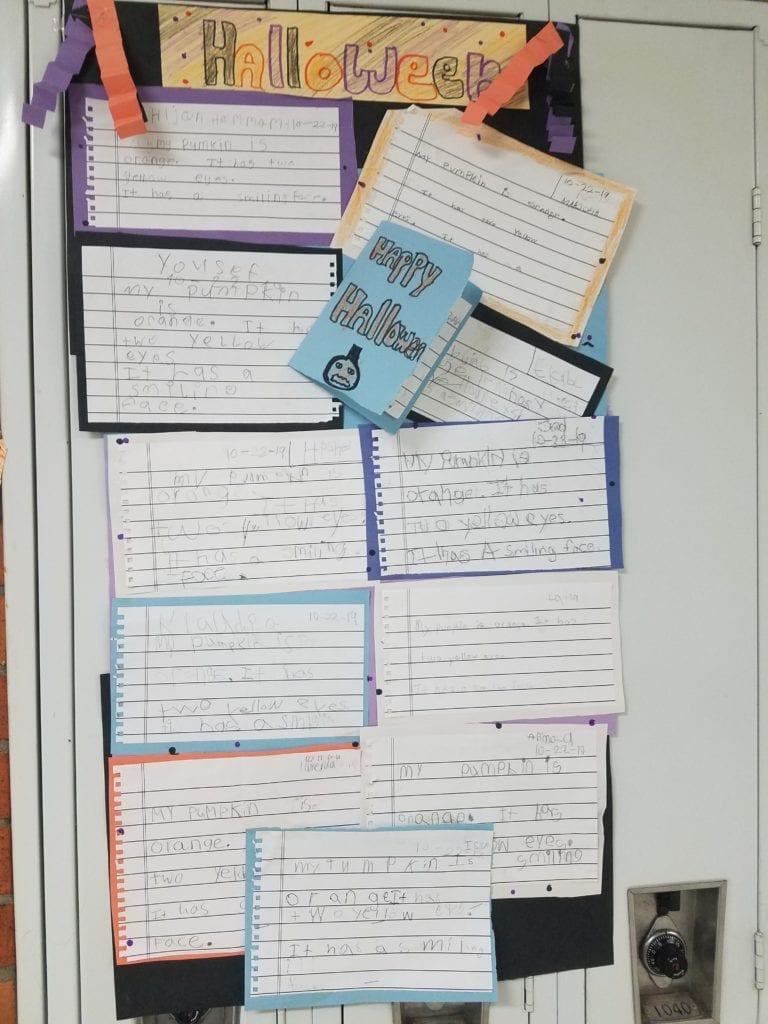 Halloween
Hijan Hammami 10-22-19
my pumkin is
orange. It has two
yellow eyes.
It has a smiling face.
10-22-19
my pumpkin is orange.
It has two yellow
It has a
Yousef
my pumpkin
is
orange. It ha
two yellow
eyes
It has a
smiling
face.
HAPPY
Hallowe
10-22-19
my pumpkin is
orang It has
two yellow eyes.
It has a smiling
face.
Jad
10-22-19
My Pumpkin is
orange. It has
two yellow eyes.
It has A smiling face.
10-22-19
My pumpkin is
It has
two yellow eyes
it has a
Laila
My is orange It has
two yellow eyes
MY Pumpkin is
orange.
two yell
It has
Face.
Ahmad
10-22-19
My pumpkin is
It has
ow eyes.
smiling
my Pumpkin Is
orange It has
two yellow eyes.
It has a smiling
1040